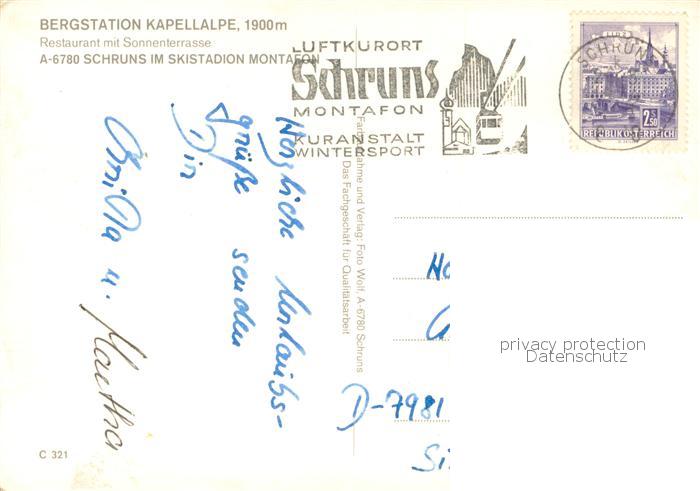 BERGSTATION KAPELLALPE, 1900m
Restaurant mit Sonnenterrasse
A-6780 SCHRUNS IM SKISTADION MONTAFON
LUFTKURORT
Schruns
MONTAFON
KURANSTALT
WINTERSPORT
SCHRUNS
LINZ
REPUBLIK ÖSTERREICH
2,50
Herzliche Urlaubs-
grüße senden
Dir
u. Martha
Farbaufnahme und Verlag: Foto Wolf, A-6780 Schruns
Das Fachgeschäft für Qualitätsarbeit
D-7981
privacy protection
Datenschutz
C 321